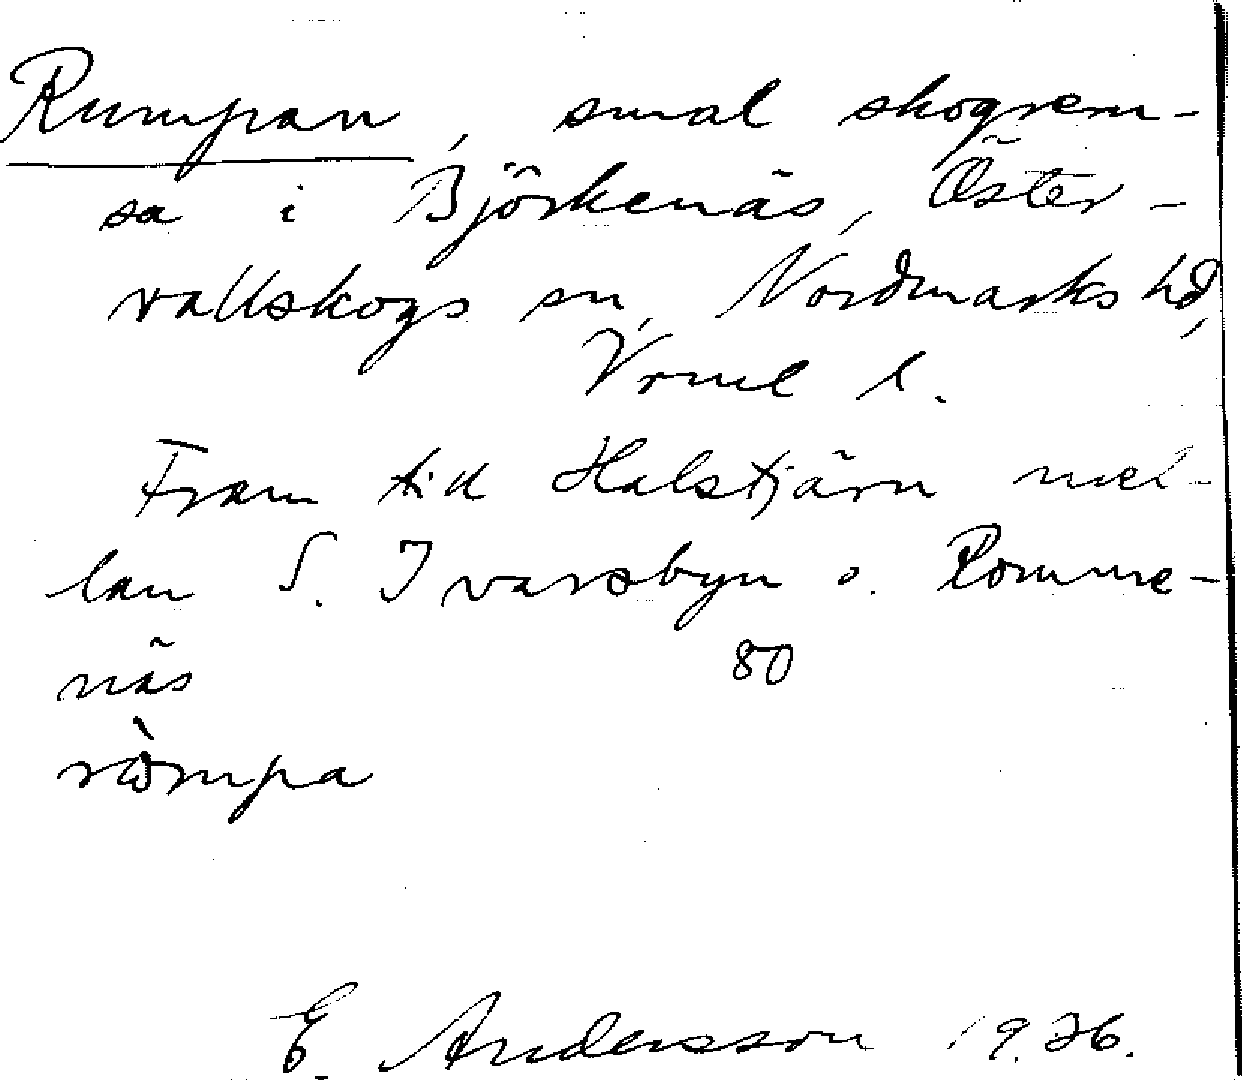 Rumpan, smal skogrem-
sa i Björkenäs, Öster-
vallskogs sn, Nordmarks hd,
Vrml l.
Fram till Halstjärn mel-
lan S. Ivarsbyn o. Pomme-
näs 80
ròmpa
E. Andersson 1936.